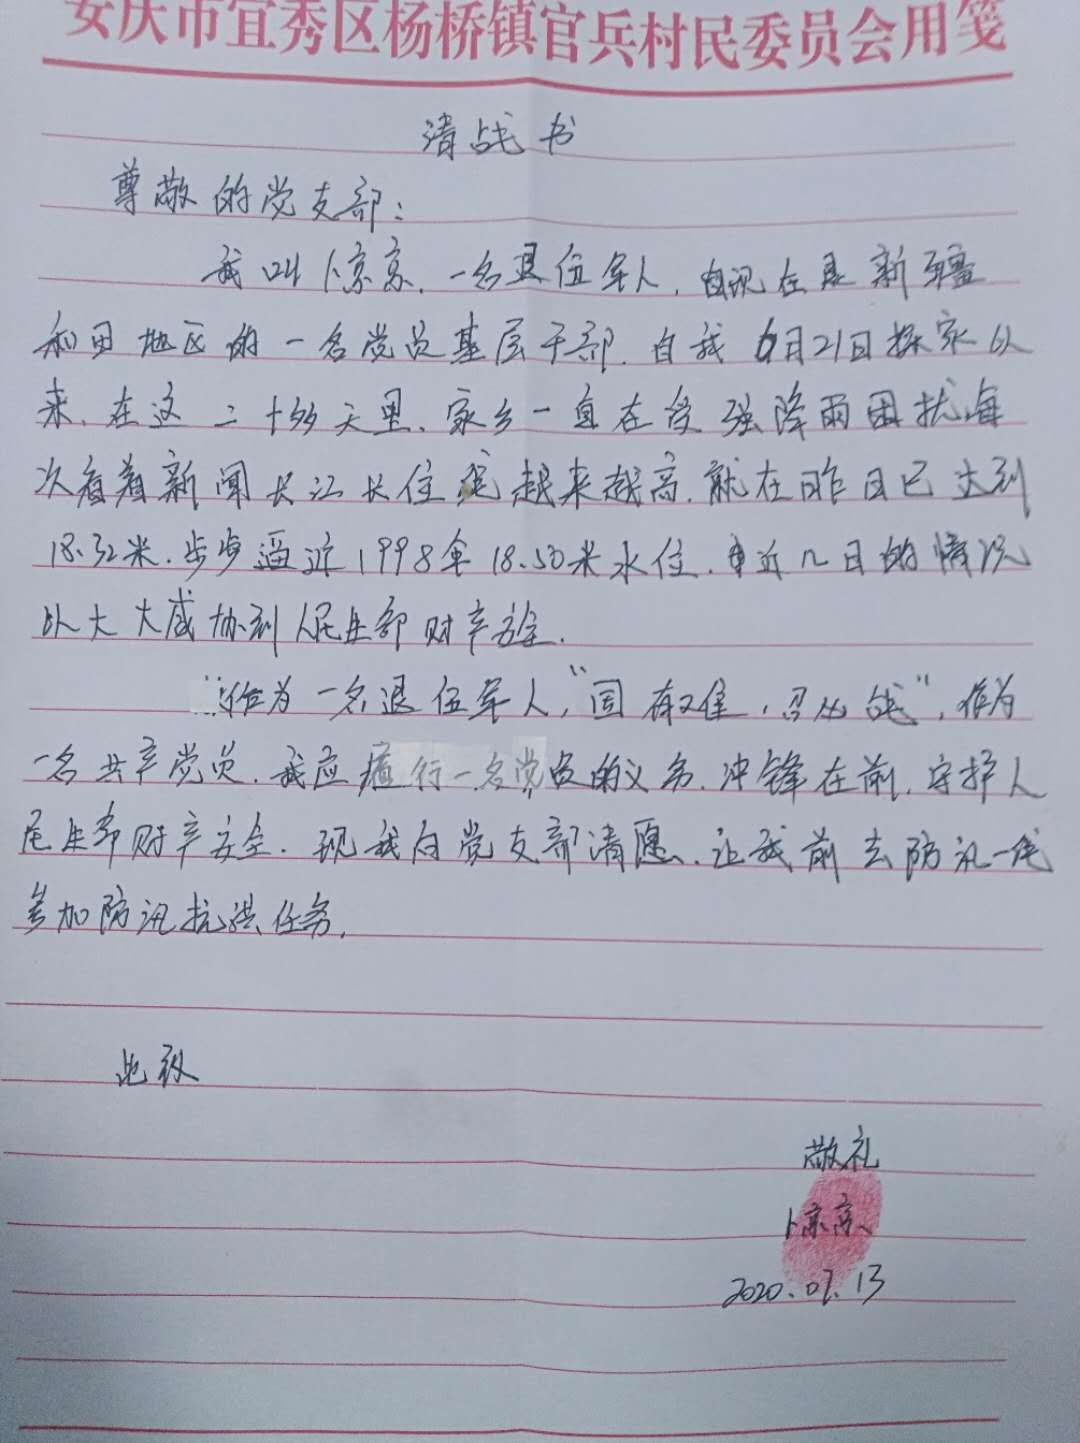 安庆市宜秀区杨桥镇官兵村民委员会用笺
请战书
尊敬的党支部：
我叫卞京京，一名退伍军人，现在是新疆
和田地区的一名党员基层干部，自我6月21日探家以
来，在这二十多天里，家乡一直在受强降雨困扰每
次看着新闻长江水位越来越高，就在昨日已达到
18.32米，步步逼近1998年18.50米水位，近几日的情况
以大大威协到人民生命财产安全.
作为一名退伍军人，“国有难，召必战”，作为
一名共产党员，我应履行一名党员的义务，冲锋在前，守护人
民生命财产安全，现我向党支部请愿，让我前去防汛一线
参加防汛抗洪任务.
此致
敬礼
卞京京
2020.07.13